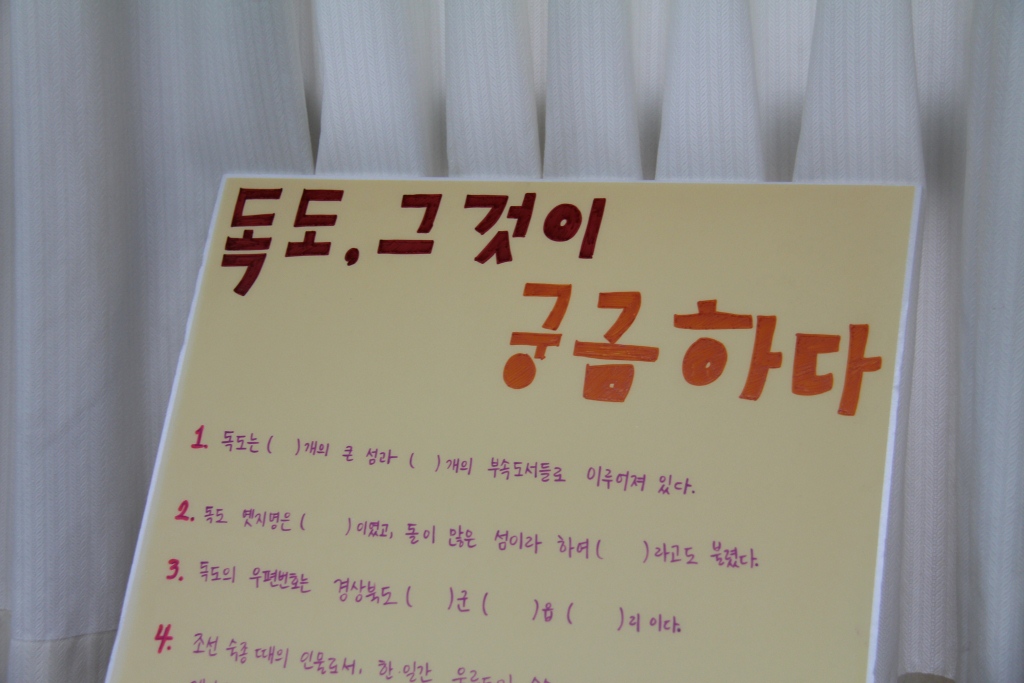 독도, 그것이
궁금하다
1. 독도는 ( )개의 큰 섬과 ( )개의 부속도서들로 이루어져 있다.
2. 독도 옛지명은 ( )이였고, 돌이 많은 섬이라 하여 ( )라고도 불렸다.
3. 독도의 우편번호는 경상북도 ( )군 ( )읍 ( )리 이다.
4. 조선 숙종 때의 인물로서, 한·일간